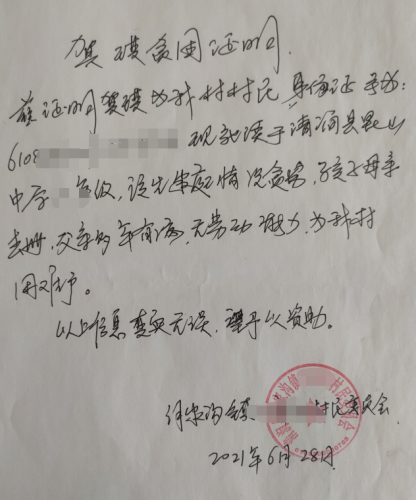 贺 瑛贫困证明
兹证明贺瑛为我村村民 身份证号为:
6108 现就读于清涧县昆山
中学 年级,该生家庭情况贫穷,孩子母亲
去世,父亲多年有病,无劳动能力,为我村
困难户。
以上信息真实无误,望予以资助。
镇 村民委员会
2021年6月28日